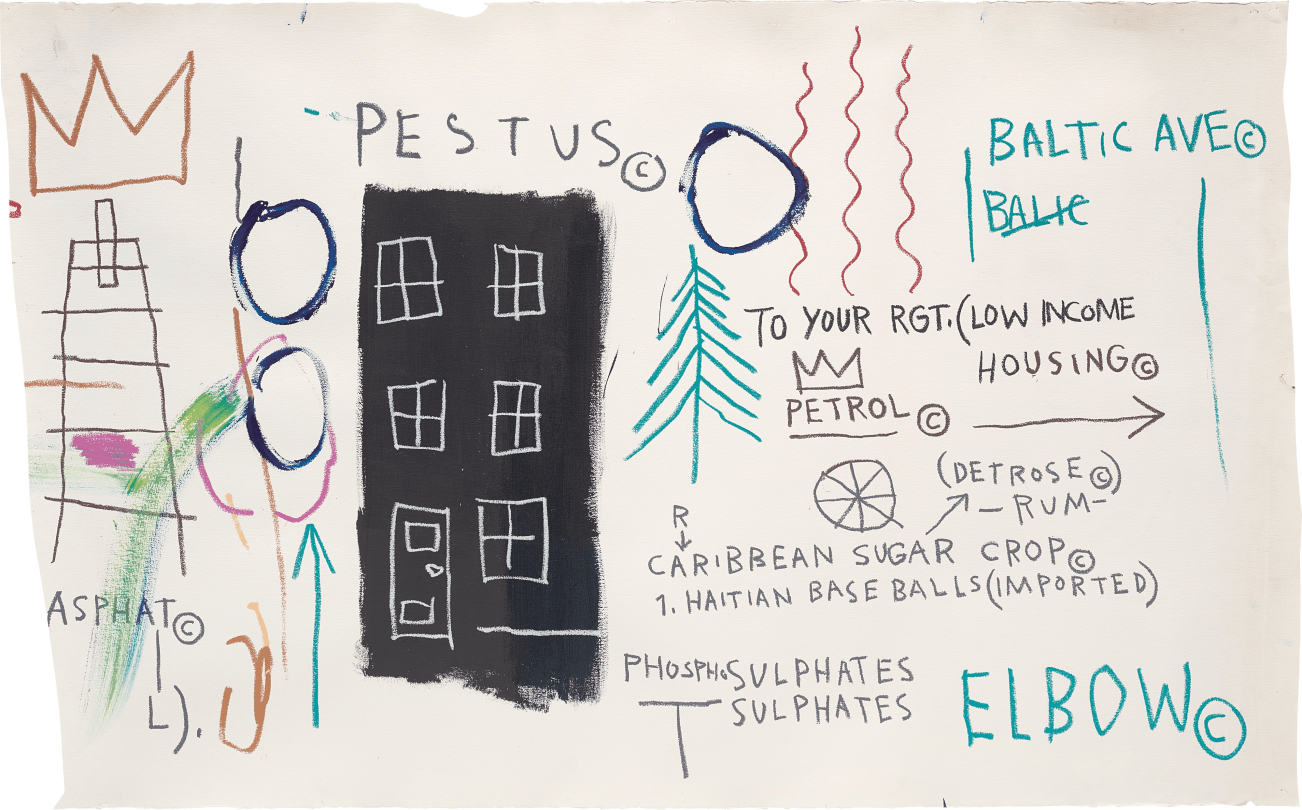 PESTUS©
BALTIC AVE©
BALIC
TO YOUR RGT. (LOW INCOME
HOUSING©
PETROL ©
(DETROSE©)
—RUM—
R
CARIBBEAN SUGAR CROP©
1. HAITIAN BASE BALLS (IMPORTED)
ASPHAT©
L).
PHOSPHOSULPHATES
SULPHATES
ELBOW©